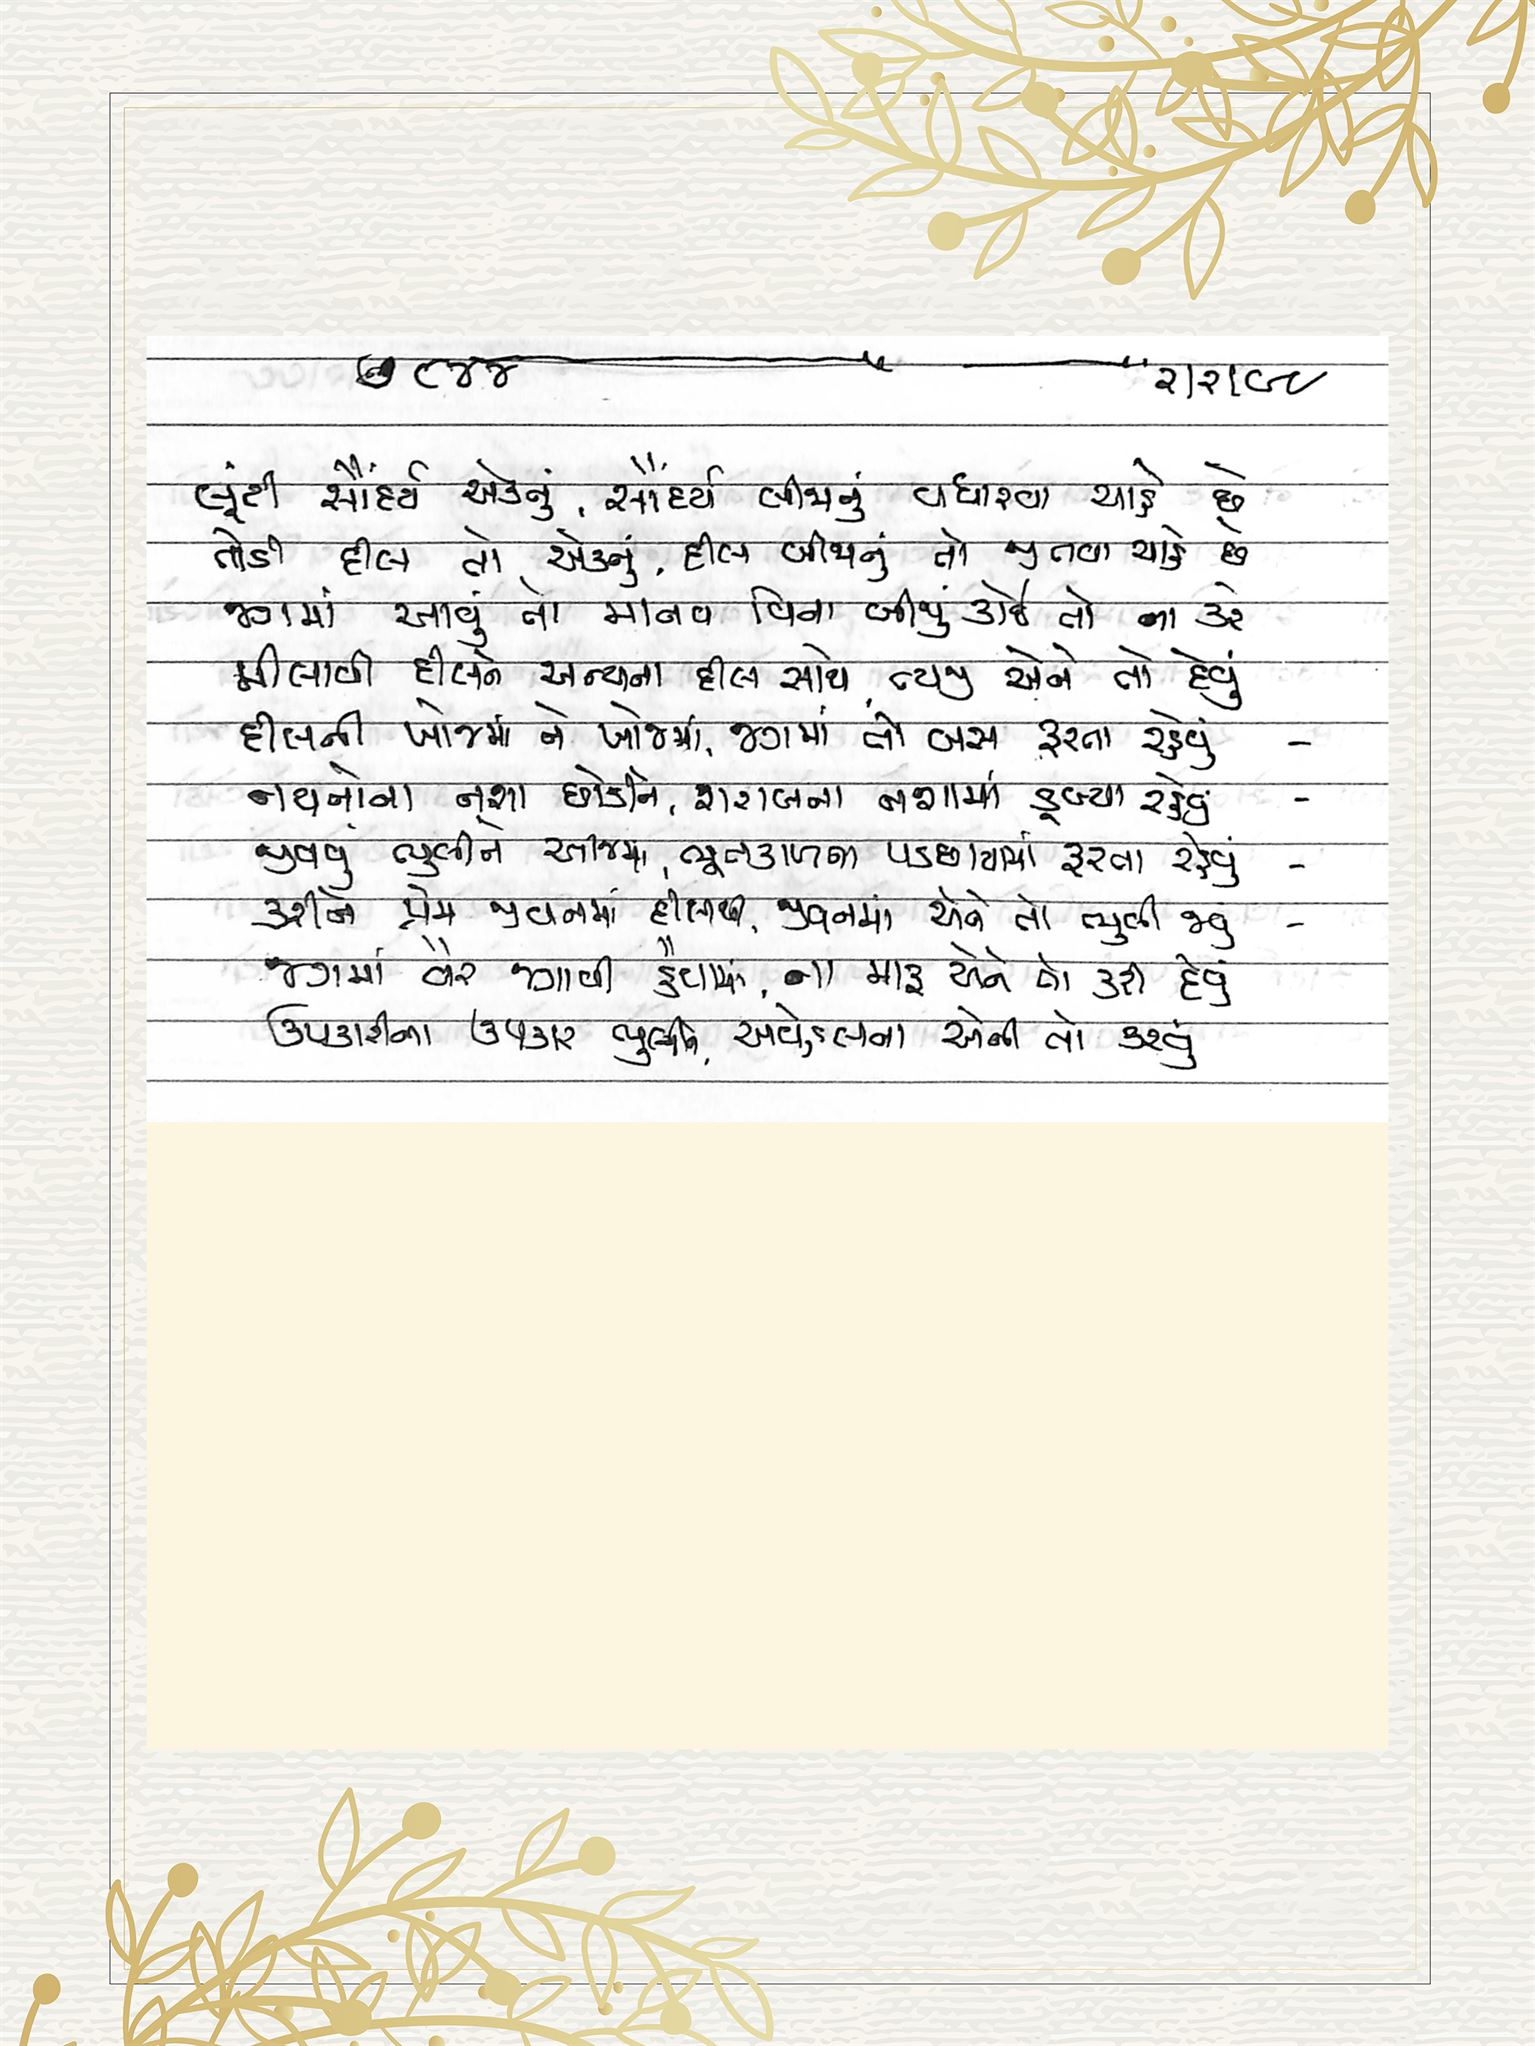 ૭૯૪૪ ૨|૨|૯૮
લૂંટી સૌંદર્ય એકનું, સૌંદર્ય બીજાનું વધારવા ચાહે છે
તોડી દીલ તો એકનું, દીલ બીજાનું તો જીતવા ચાહે છે
જગમાં આવું તો માનવ વિના બીજું કોઈ તો ના કરે
મીલાવી દીલને અન્યના દીલ સાથે, ત્યજી એને તો દેવું
દીલની ખોજમાં ને ખોજમાં, જગમાં તો બસ ફરતા રહેવું -
નયનોના નશા છોડીને, શરાબના નશામાં ડૂબ્યા રહેવું -
જીવવું ભુલીને આજમાં, ભૂતકાળના પડછાયામાં ફરતા રહેવું -
કરીને પ્રેમ જીવનમાં દીલથી, જીવનમાં એને તો ભુલી જવું -
જગમાં વૈર જગાવી હૈયામાં, ના માફ એને તો કરી દેવું
ઉપકારીના ઉપકાર ભુલીને, અવેહલના એની તો કરવું